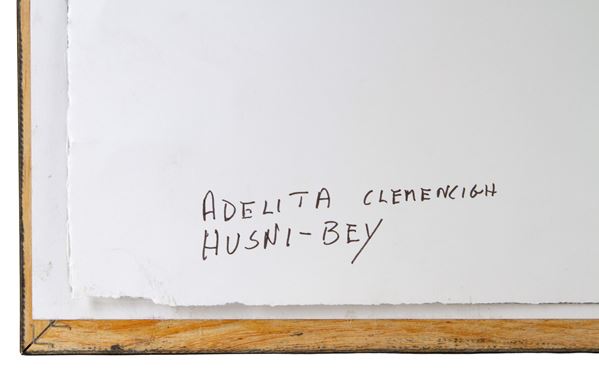 ADELITA CLEMENCIGH
HUSNI-BEY